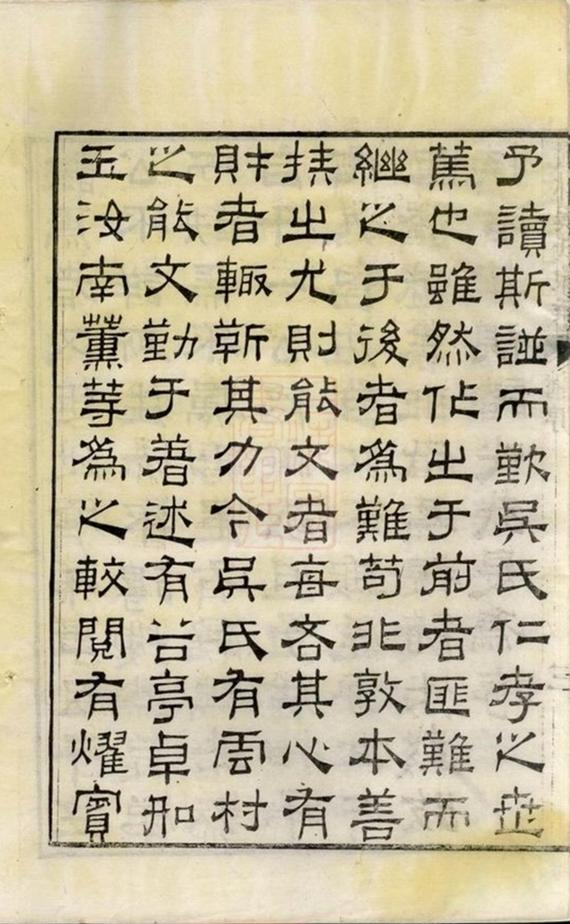 予讀斯譜而歎吳氏仁孝之世
篤也雖然作之于前者匪難而
繼之于後者為難苟非敦本善
族之尤則能文者每吝其心有
財者輒靳其力今吳氏有雲村
之能文勤于著述有谷亭卓
玉汝南薰等為之較閱有燿賓